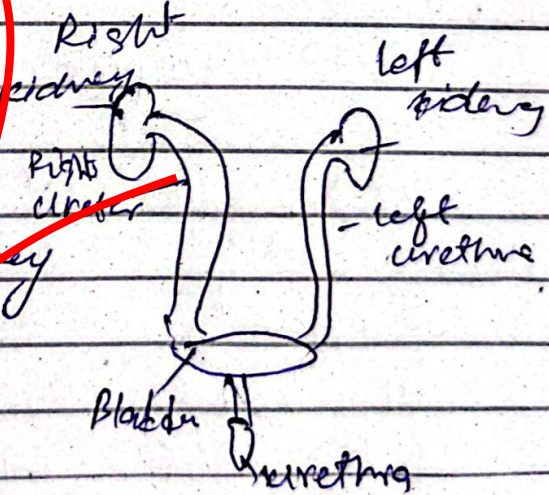 Right
kidney
left
kidney
Right
Ureter
left
urethra
ey
Bladder
urethra